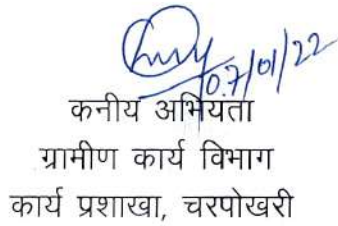 07/01/22
कनीय अभियता
ग्रामीण कार्य विभाग
कार्य प्रशाखा, चरपोखरी